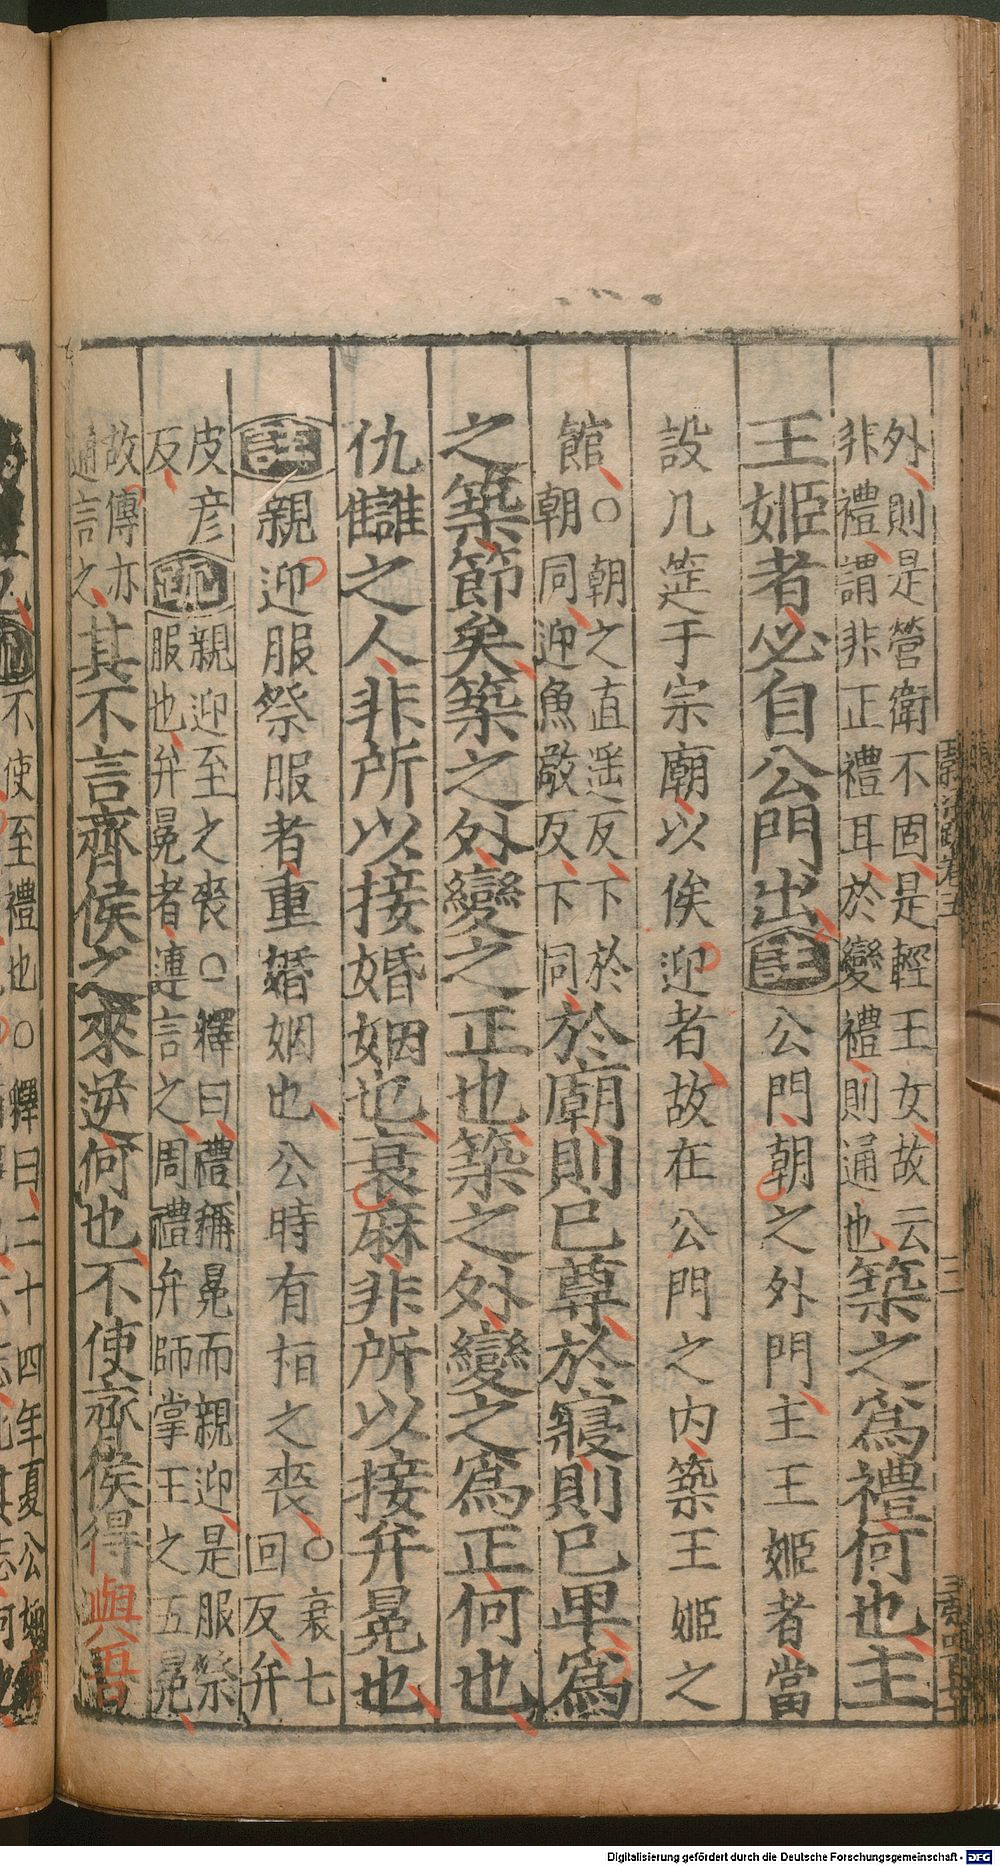 外則是營衛不固是輕王女故云
非禮謂非正禮耳於變禮則通也築之爲禮何也主
王姬者必自公門出註公門朝之外門主王姬者當
設几筵于宗廟以俟迎者故在公門之内築王姬之
館○朝之直遥反下於
朝同迎魚敬反下同於廟則已尊於寢則已卑爲
之築節矣築之外變之正也築之外變之爲正何也
仇讎之人非所以接婚姻也衰麻非所以接弁冕也
註親迎服祭服者重婚姻也公時有桓之喪○衰七
回反弁
皮彦
反疏親迎至之喪○釋曰禮稱冕而親迎是服祭
服也弁冕者連言之周禮弁師掌王之五冕
故傳亦
通言之其不言齊侯之來逆何也不使齊侯得與吾
不使至禮也○釋曰二十四年夏公